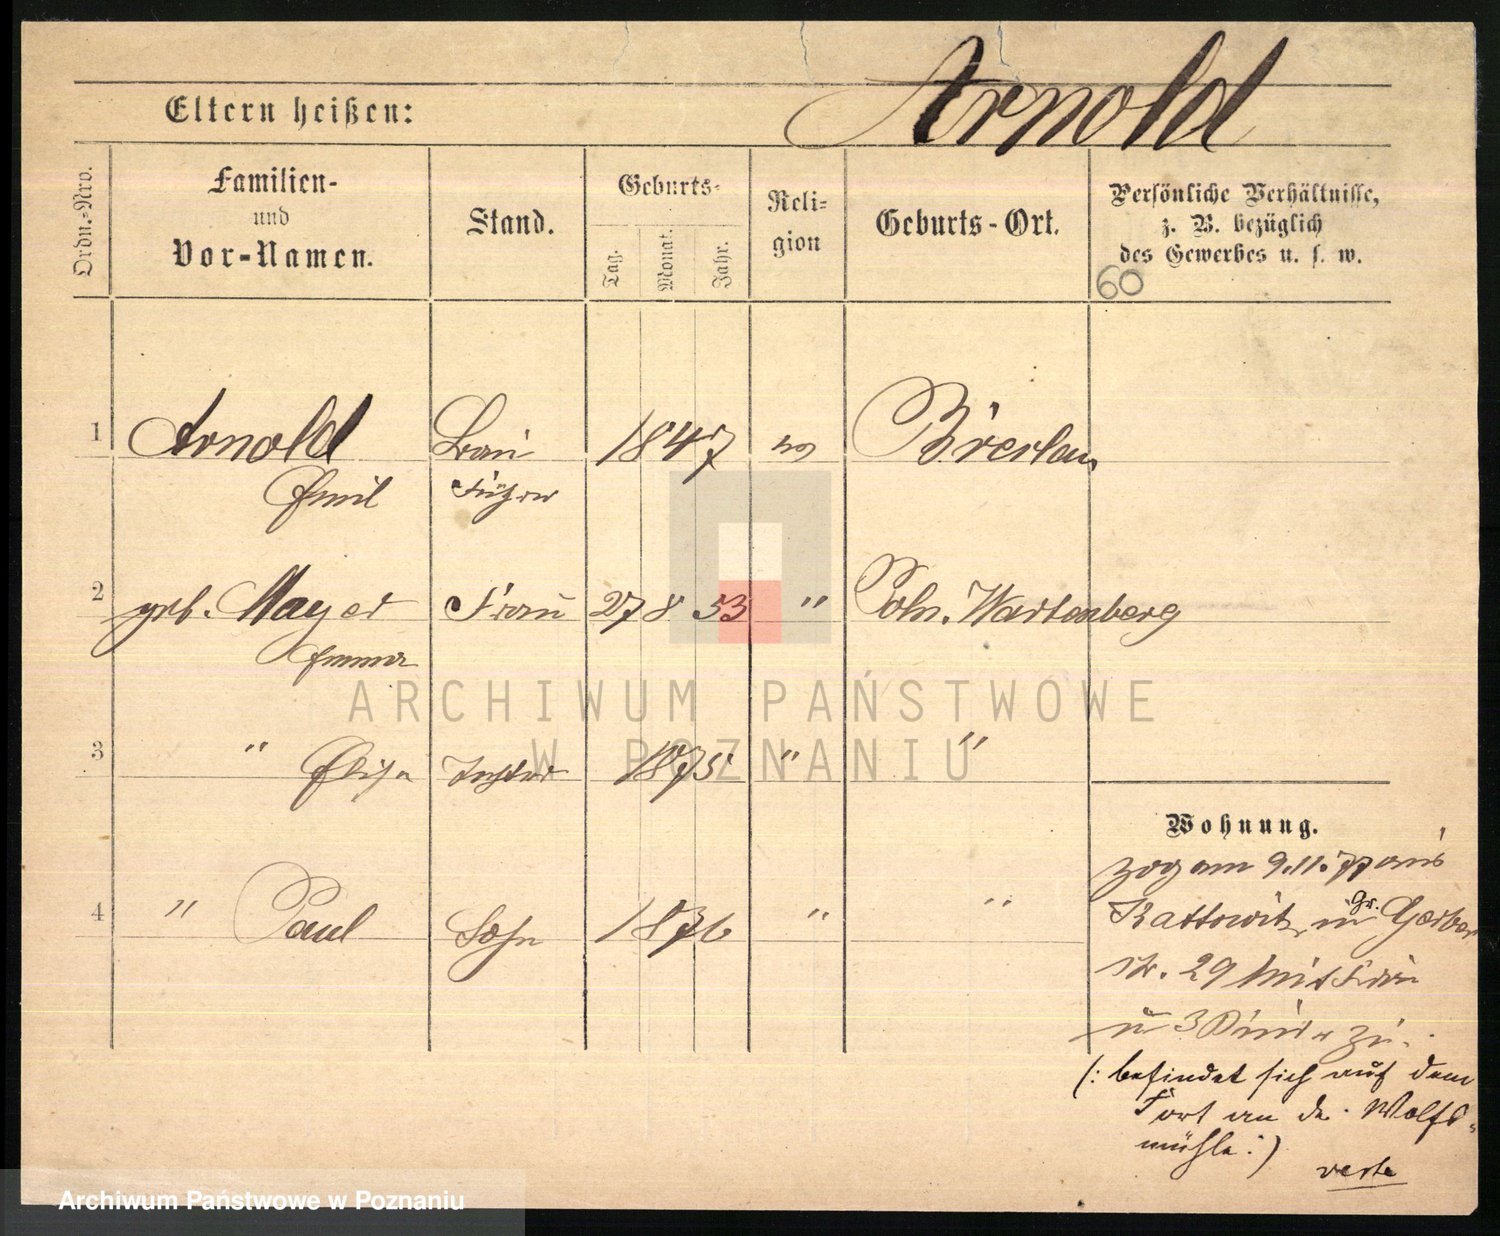 Arnold
Eltern heißen:
Ordn.-Nro.
Familien-
und
Vor-Namen.
Stand.
Geburts-
Tag.
Monat.
Jahr.
Reli-
gion
Geburts-Ort.
Persönliche Verhältnisse,
z. B. bezüglich
des Gewerbes u. s. w.
60
1 Arnold Bau 1847 Breslau
Emil
2 geb. Mayer Frau 27 8 53 " Poln. Wartenberg
Emma
3 " Elisa Tochter 1875 " "
4 " Paul Sohn 1876 " "
Wohnung.
zog am 9.11.77 aus
Kattowitz in Gr. Gerber
str. 29 mit Frau
u 3 Kinder zu.
(: befindet sich auf dem
Fort an der Wolfs-
mühle :)
verte
ARCHIWUM PAŃSTWOWE
W POZNANIU
Archiwum Państwowe w Poznaniu